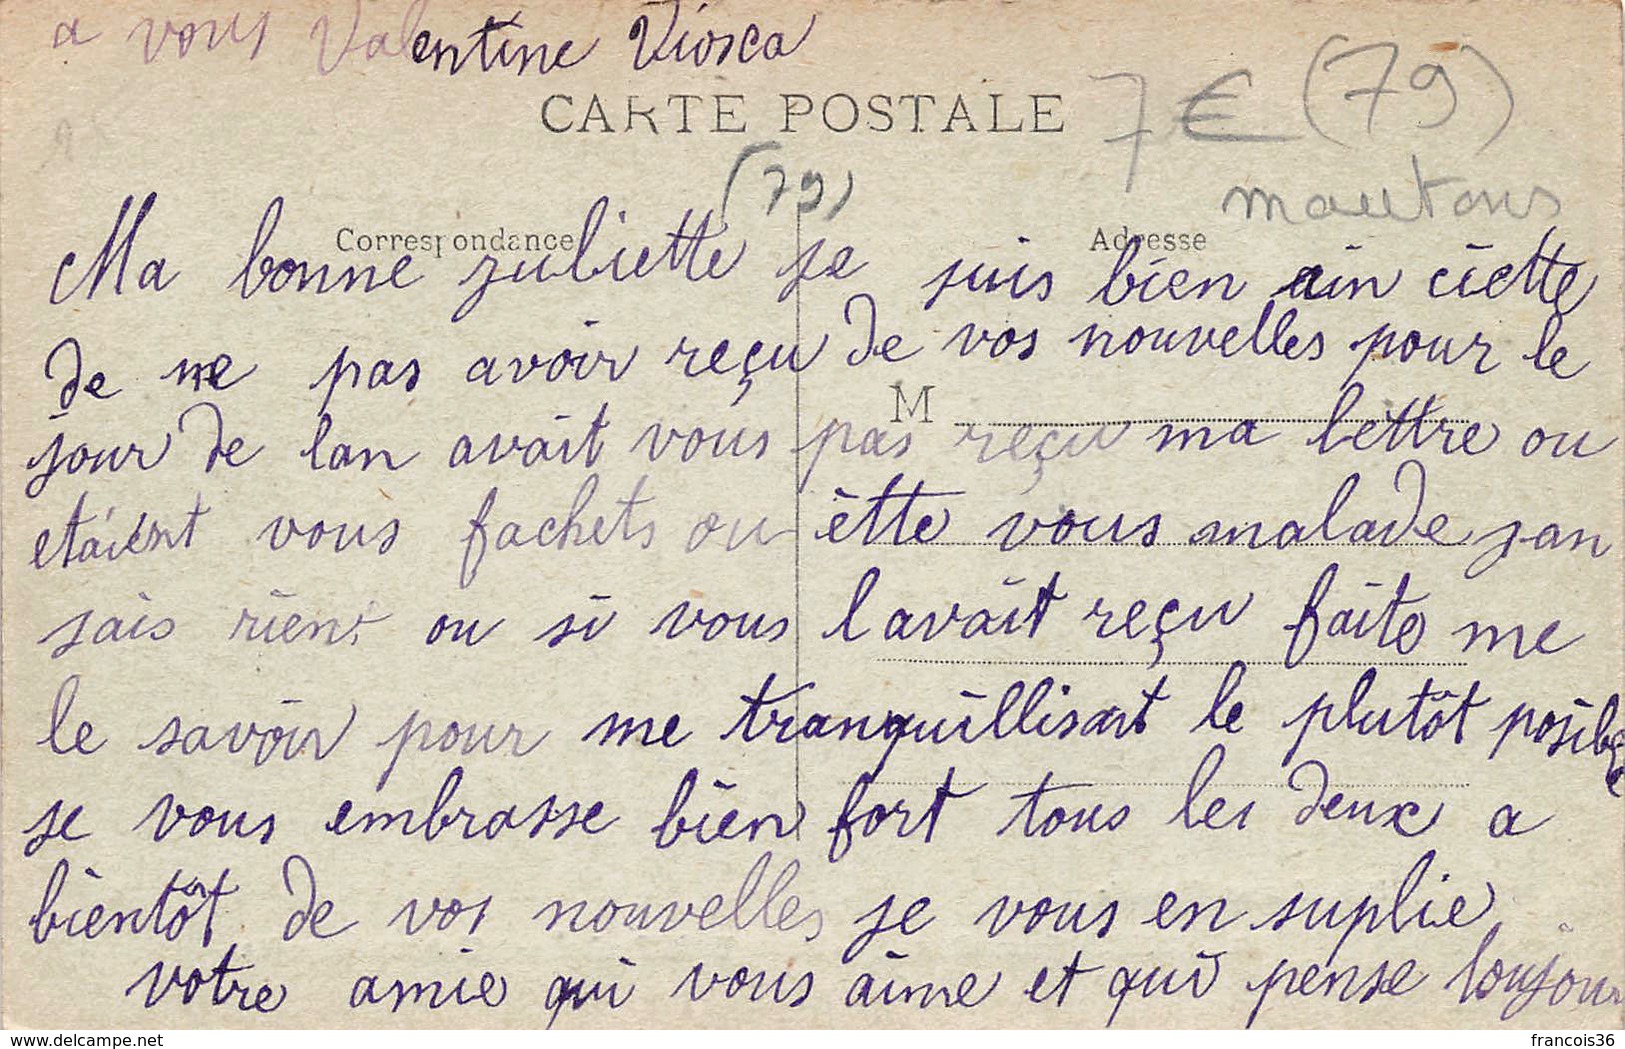 a vous Valentine Viosca
CARTE POSTALE
7 € (79)
(79)
Correspondance
Adresse
Ma bonne juliette je suis bien ain ciette
de ne pas avoir reçu de vos nouvelles pour le
M
jour de lan avait vous pas reçu ma lettre ou
etaient vous fachets ou étte vous malade jan
sais rient ou si vous lavait reçu faite me
le savoir pour me tranquillisant le plutôt posible
je vous embrasse bien fort tous les deux a
bientôt de vos nouvelles je vous en suplie
votre amie qui vous aime et qui pense toujour
delcampe.net
francois36